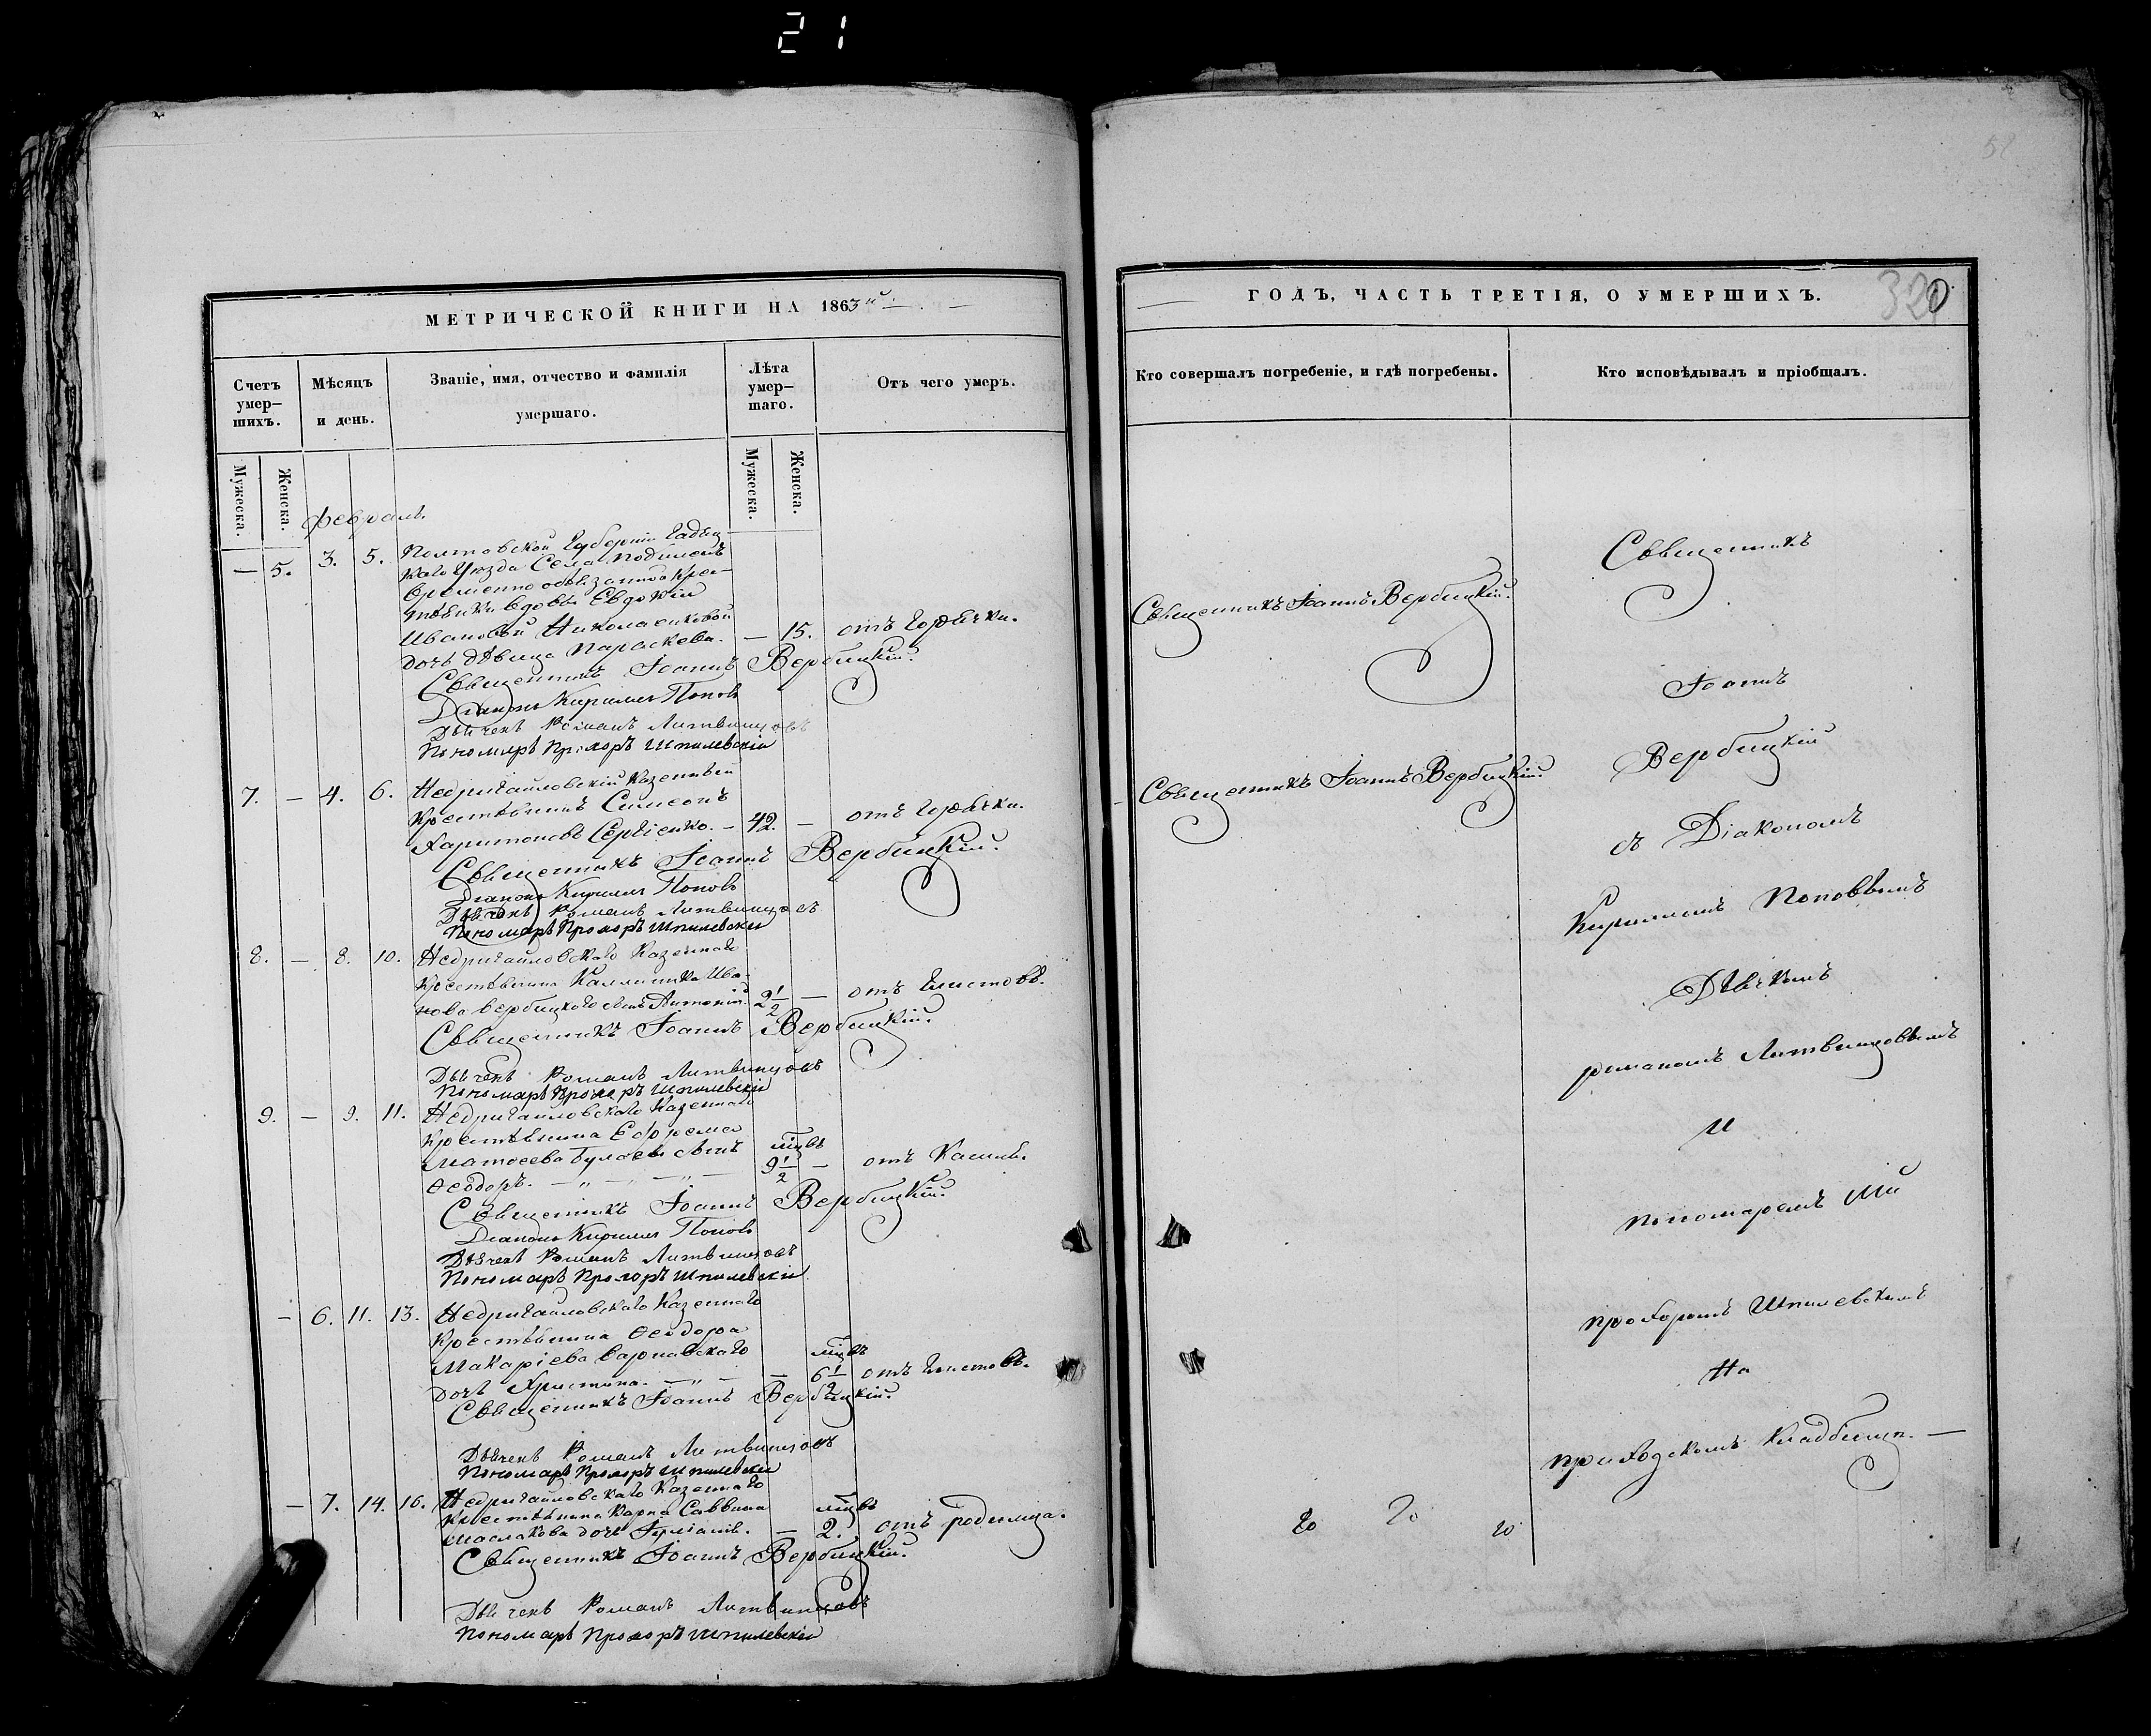 21
МЕТРИЧЕСКОЙ КНИГИ НА 1863й
Счетъ умер–шихъ.
Мѣсяцъ и день.
Званіе, имя, отчество и фамилія умершаго.
Лѣта умер–шаго.
Отъ чего умеръ.
Мужеска.
Женска.
Мужеска.
Женска.
Февраль.
— 5. 3. 5. Полтавской Губерніи Гадяц
каго Уѣзда Села
временно обязанной крес–
тьянки вдовы Евдокіи
Ивановой Николаенковой
дочь дѣвица Параскева. — 15. отъ горячки.
Священникъ Іоаннъ Вербицкій.
Діаконъ Кириллъ Поповъ
Дьячекъ Романъ Литвинцовъ
Пономарь Прохоръ Шпилевскій
7. — 4. 6. Недригайловскій Казенный
Крестьянинъ Симеонъ
Харитоновъ Сергіенко. — 42. — отъ горячки.
Священникъ Іоаннъ Вербицкій.
Діаконъ Кириллъ Поповъ
Дьячекъ Романъ Литвинцовъ
Пономарь Прохоръ Шпилевскій
8. — 8. 10. Недригайловскаго Казеннаго
Крестьянина Каллиника Ива–
нова Вербицкого сынъ Антоній. 2 1/2 — отъ глистовъ.
Священникъ Іоаннъ Вербицкій.
Дьячекъ Романъ Литвинцовъ
Пономарь Прохоръ Шпилевскій
9. — 9. 11. Недригайловскаго Казеннаго
Крестьянина Ефрема
Матѳеева сынъ мцвъ
Ѳеодоръ. — „ — „ — 9 1/2 — отъ Кашля.
Священникъ Іоаннъ Вербицкій.
Діаконъ Кириллъ Поповъ
Дьячекъ Романъ Литвинцовъ
Пономарь Прохоръ Шпилевскій
— 6. 11. 13. Недригайловскаго Казеннаго
Крестьянина Ѳеодора
Макаріева Варнавскаго мцвъ
дочь Христина. — „ — — 6 1/2 отъ глистовъ.
Священникъ Іоаннъ Вербицкій.
Дьячекъ Романъ Литвинцовъ
Пономарь Прохоръ Шпилевскій
— 7. 14. 16. Недригайловскаго Казеннаго
Крестьянина Карпа Саввина мцвъ
Маслакова дочь — 2. отъ родимца.
Священникъ Іоаннъ Вербицкій.
Дьячекъ Романъ Литвинцовъ
Пономарь Прохоръ Шпилевскій
ГОДЪ, ЧАСТЬ ТРЕТІЯ, О УМЕРШИХЪ.
320
Кто совершалъ погребеніе, и гдѣ погребены.
Кто исповѣдывалъ и пріобщалъ.
Священникъ Іоаннъ Вербицкій.
Священникъ Іоаннъ Вербицкій.
Священникъ
Іоаннъ
Вербицкій
съ Діакономъ
Кирилломъ Поповымъ
Дьячкомъ
Романомъ Литвинцовымъ
и
пономаремъ
Прохоромъ Шпилевскимъ
На
приходскомъ кладбищѣ. —